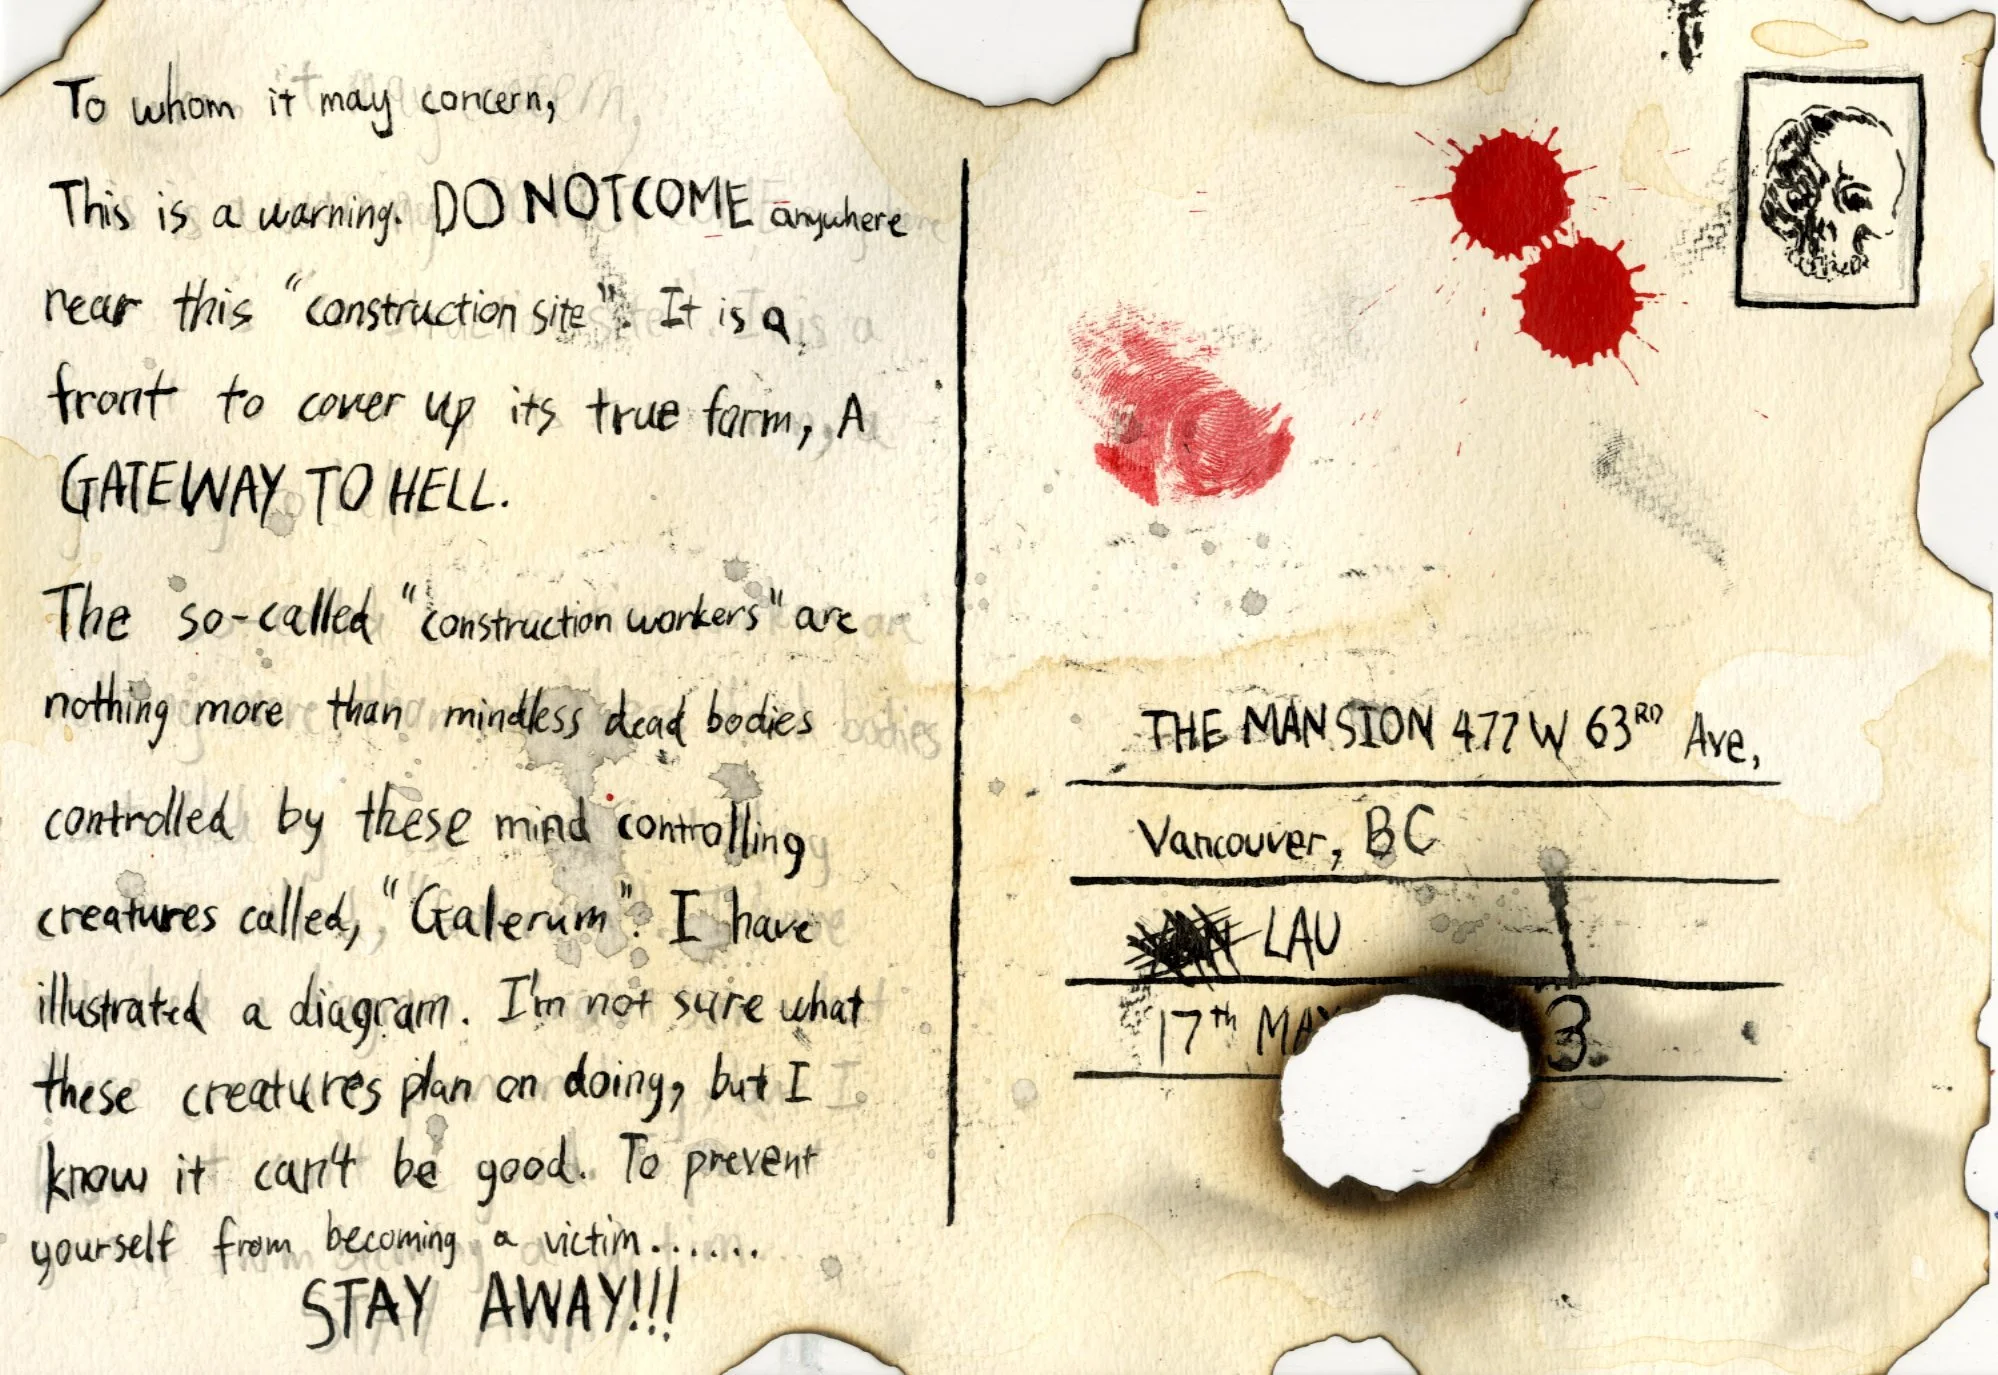 To whom it may concern,
This is a warning. DO NOT COME anywhere
near this "construction site". It is a
front to cover up its true form, A
GATEWAY TO HELL.
The so-called "construction workers" are
nothing more than mindless dead bodies
controlled by these mind controlling
creatures called, "Galerum". I have
illustrated a diagram. I'm not sure what
these creatures plan on doing, but I
know it can't be good. To prevent
yourself from becoming a victim......
STAY AWAY!!!
THE MANSION 477 W 63RD Ave,
Vancouver, BC
LAU
17th MAY 3